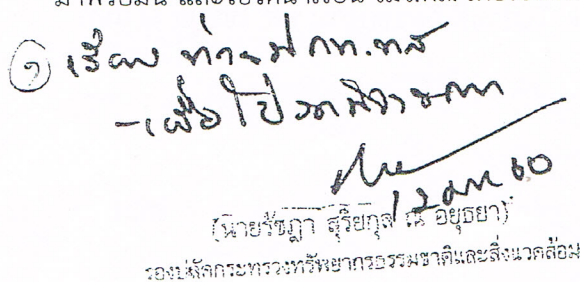 ๑ เรียน ท่านปกท.ทส
- เพื่อโปรดพิจารณา
12 ตค 60
(นายรัชฎา สุริยกุล ณ อยุธยา)
รองปลัดกระทรวงทรัพยากรธรรมชาติและสิ่งแวดล้อม